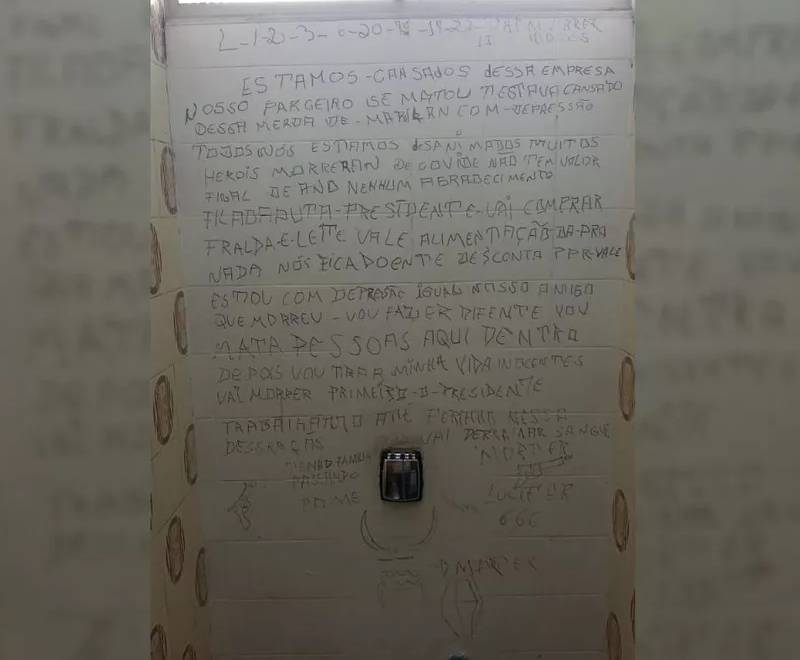 L-1-2-3-6-20-19-19-22- VAI MORRER
13
ESTAMOS-CANSADOS dESSA EMPRESA
NOSSO PARCEIRO SE MATOU TESTAVA CANSADO
DESSA MERDA DE-MARILAN COM-DEPRESSÃO
TODOS NÓS ESTAMOS dESANIMADOS MUITOS
HEROIS MORRERAN DE COVIDE NÃO TEM VALOR
FINAL DE ANO NENHUM AGRADECIMENTO
FILADAPUTA-PRESIDENTE-VAI COMPRAR
FRALDA-E-LEITE VALE ALIMENTAÇÃO DA-PRA
NADA NÓS FICA DOENTE DESCONTA VALE
ESTOU COM DEPRESÃO IGUAL NOSSO AMIGO
QUE MORREU-VOU FAZER DIFENTE VOU
MATA PESSOAS AQUI DENTRO
DEPOIS VOU TIRAR MINHA VIDA INOCENTES
VAI MORRER PRIMEIRO-O-PRESIDENTE
TRABAIHANDO ATÉ FERIADO NESSA
DESGRAÇAS VAI DERRAMAR SANGUE
TENHO FAMILIA
PASSANDO
FOME
MORTTER
LUCIFER
666